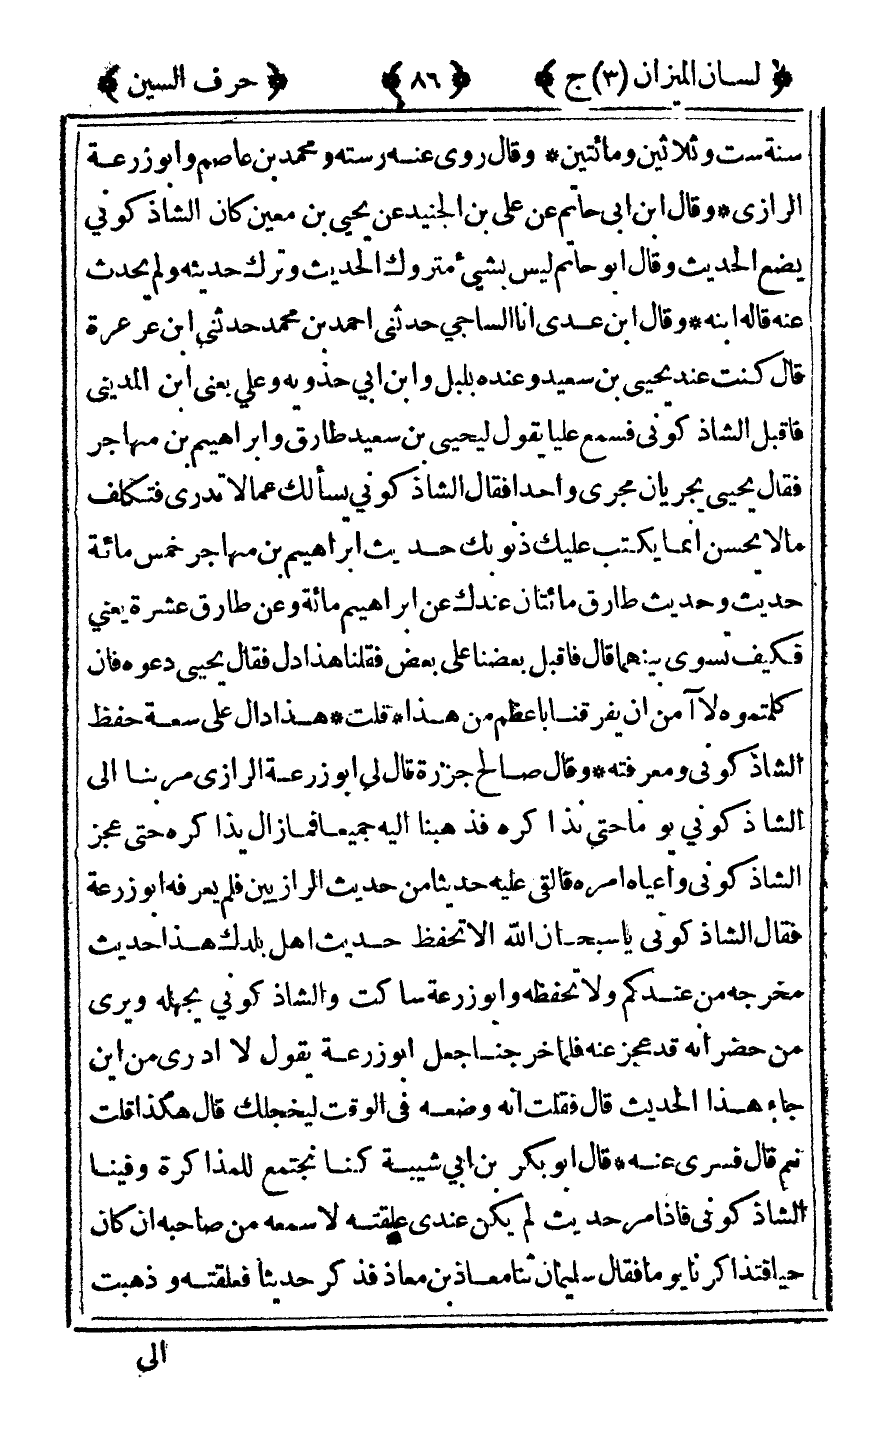 ﴿ لسان الميزان (٣) ج ﴾ ﴿ ٨٦ ﴾ ﴿ حرف السين ﴾
سنة ست وثلاثين ومائتين* وقال روى عنه رسته ومحمد بن عاصم وابوزرعة
الرازى* وقال ابن ابى حاتم عن على بن الجنيد عن يحيى بن معين كان الشاذكوني
يضع الحديث وقال ابو حاتم ليس بشيئ متروك الحديث وترك حديثه ولم يحدث
عنه قاله ابنه* وقال ابن عدى انا الساجي حدثنى احمد بن محمد حدثني ابن عرعرة
قال كنت عند يحيى بن سعيد وعنده بلبل وابن ابي حذويه وعلي يعنى ابن المدينى
فاقبل الشاذكونى فسمع عليا يقول ليحيى بن سعيد طارق وابراهيم بن مهاجر
فقال يحيى يجريان مجرى واحدا فقال الشاذكوني يسألك عما لا تدرى فتكلف
مالا يحسن انما يكتب عليك ذنوبك حديث ابراهيم بن مهاجر خمس مائة
حديث وحديث طارق مائتان عندك عن ابراهيم مائة وعن طارق عشرة يعني
فكيف تسوى بينهما قال فاقبل بعضنا على بعض فقلنا هذا دل فقال يحيى دعوه فان
كلمتموه لا آمن ان يفرقنا باعظم من هذا* قلت* هذا دال على سعة حفظ
الشاذكونى ومعرفته* وقال صالح جزرة قال لي ابوزرعة الرازى مر بنا الى
الشاذكوني يوما حتى نذاكره فذهبنا اليه جميعا فمازال يذاكره حتى عجز
الشاذكونى واعياه امره فالقى عليه حديثا من حديث الرازيين فلم يعرفه ابوزرعة
فقال الشاذكونى ياسبحان الله الاتحفظ حديث اهل بلدك هذا حديث
مخرجه من عندكم ولا تحفظه وابوزرعة ساكت والشاذكوني يجهله ويرى
من حضر انه قد عجز عنه فلما خرجنا جعل ابوزرعة يقول لا ادرى من اين
جاء هذا الحديث قال فقلت انه وضعه فى الوقت ليخجلك قال هكذا قلت
نعم قال فسرى عنه* قال ابوبكر بن ابي شيبة كنا نجتمع للمذاكرة وفينا
الشاذكونى فاذا مر حديث لم يكن عندى علقته لاسمعه من صاحبه ان كان
حيا فتذاكرنا يوما فقال سليمان ثنا معاذ بن معاذ فذكر حديثا فعلقته وذهبت
الى